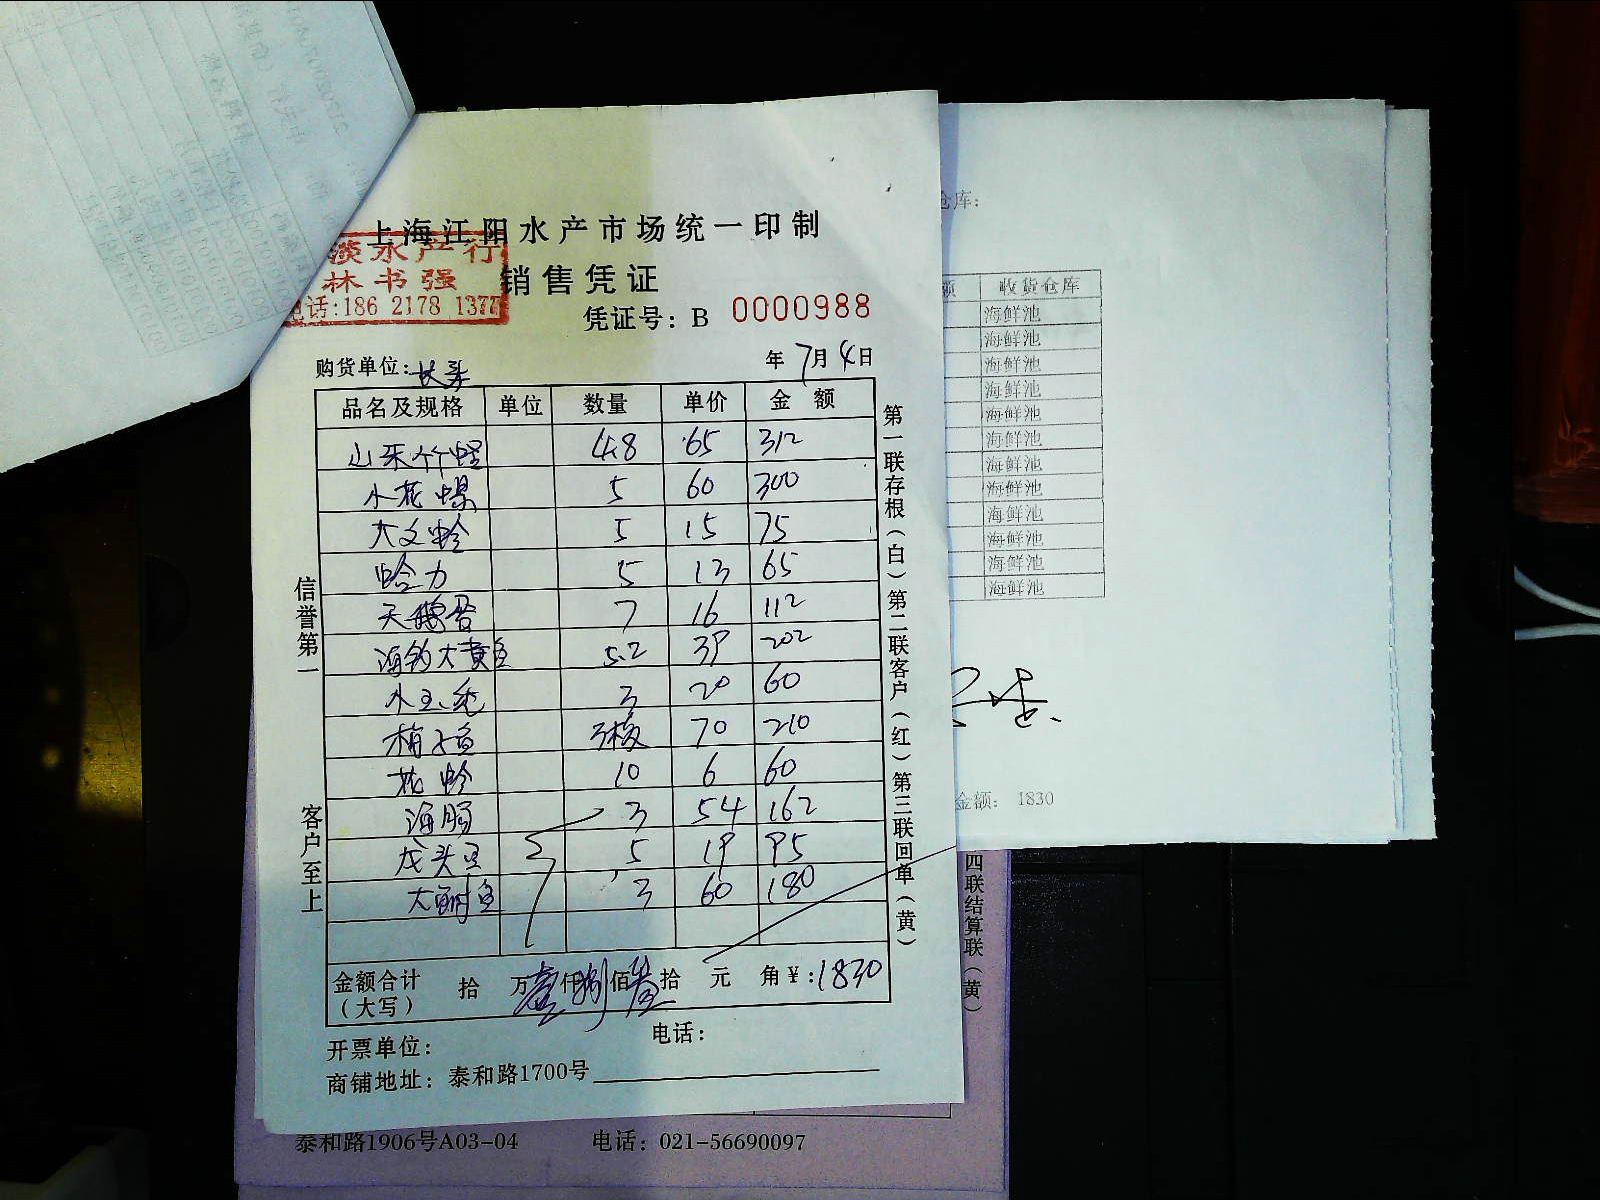 上海江阳水产市场统一印制
淡水产行
林书强
电话:186 2178 1377
销售凭证
凭证号: B 0000988
购货单位:
年7月4日
品名及规格 单位 数量 单价 金额
山东竹蛏 4.8 65 312
小花螺 5 60 300
大文蛤 5 15 75
蛤力 5 13 65
天鹅蛋 7 16 112
海钓大黄鱼 5.2 39 202
水玉兔 3 20 60
梅子鱼 3 70 210
花蛤 10 6 60
海肠 3 54 162
龙头鱼 5 19 95
大鲥鱼 3 60 180
金额合计 拾 万壹仟捌佰叁拾 元 角¥:1830
(大写)
开票单位:
电话:
商铺地址: 泰和路1700号
信誉第一
客户至上
第一联存根(白)第二联客户(红)第三联回单(黄)
仓库:
额 收货仓库
海鲜池
海鲜池
海鲜池
海鲜池
海鲜池
海鲜池
海鲜池
海鲜池
海鲜池
海鲜池
海鲜池
海鲜池
金额: 1830
四联结算联(黄)
泰和路1906号A03-04 电话: 021-56690097